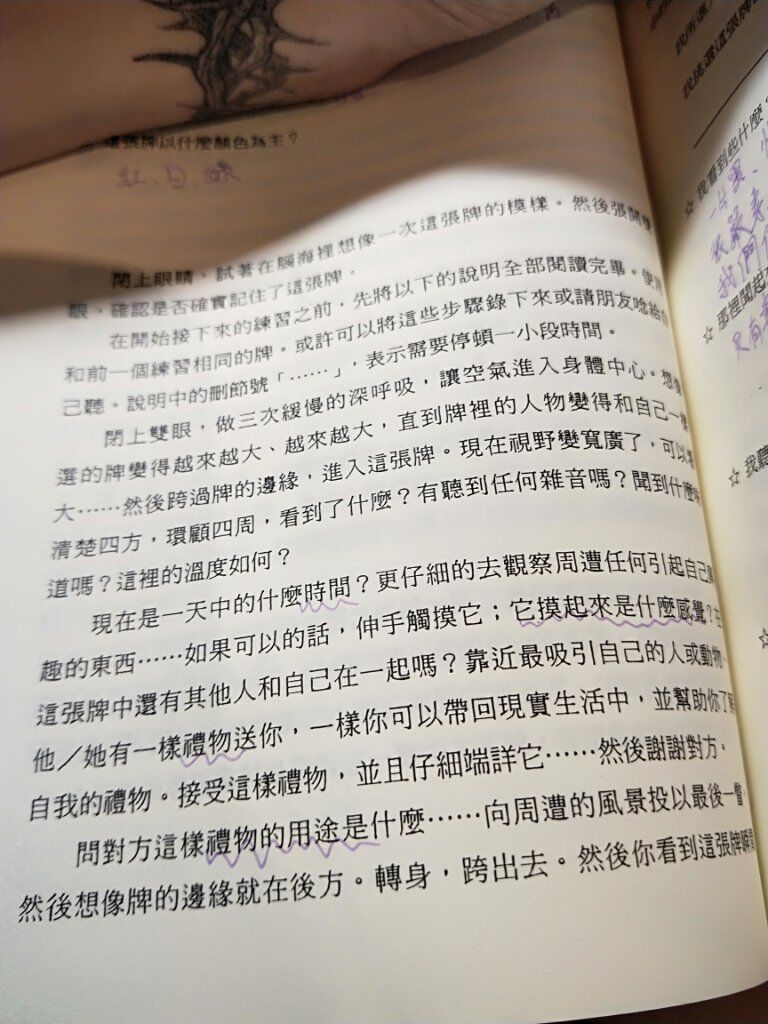 這張牌以什麼顏色為主？
紅、白、綠
閉上眼睛、試著在腦海裡想像一次這張牌的模樣。然後張開雙
眼、確認是否確實記住了這張牌。
在開始接下來的練習之前，先將以下的說明全部閱讀完畢。使用
和前一個練習相同的牌。或許可以將這些步驟錄下來或請朋友唸給自
己聽。說明中的刪節號「……」，表示需要停頓一小段時間。
閉上雙眼，做三次緩慢的深呼吸，讓空氣進入身體中心。想像
選的牌變得越來越大、越來越大，直到牌裡的人物變得和自己一樣
大……然後跨過牌的邊緣，進入這張牌。現在視野變寬廣了，可以
清楚四方，環顧四周，看到了什麼？有聽到任何雜音嗎？聞到什麼味
道嗎？這裡的溫度如何？
現在是一天中的什麼時間？更仔細的去觀察周遭任何引起自己
趣的東西……如果可以的話，伸手觸摸它；它摸起來是什麼感覺？在
這張牌中還有其他人和自己在一起嗎？靠近最吸引自己的人或動物，
他／她有一樣禮物送你，一樣你可以帶回現實生活中，並幫助你了
自我的禮物。接受這樣禮物，並且仔細端詳它……然後謝謝對方。
問對方這樣禮物的用途是什麼……向周遭的風景投以最後一瞥，
然後想像牌的邊緣就在後方。轉身，跨出去。然後你看到這張牌瞬間
我挑選這張牌
☆ 我看到些什麼？
我們
☆ 那裡聞起
只有
☆ 我聽
☆